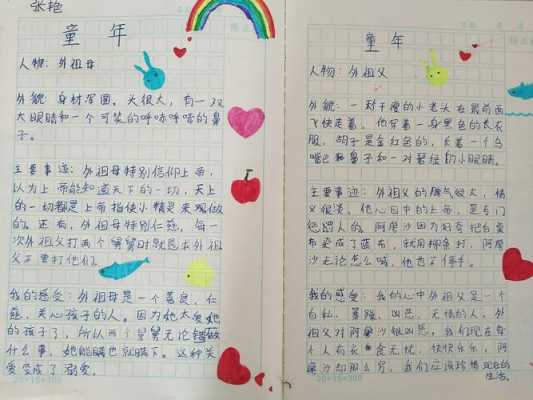 张艳
童年
人物：外祖母
外貌：身材浑圆。头很大，有一双
大眼睛和一个可笑的呼哧呼哧的鼻
子。
主要事迹：外祖母特别信仰上帝，
认为上帝能知道天下的一切，天上
的一切都是上帝指使小精灵来观做
的。还有，外祖母特别仁慈，每一
次外祖父打两个舅舅时就恳求外祖
父不要打他们。
我的感受：外祖母是一个善良、仁
慈、关心孩子的人。因为她太爱她
的孩子了，所以两个舅舅无论做
什么事，她能瞒也就瞒下。这种关
爱变成了溺爱。
20×15=300
童年
人物：外祖父
外貌：一对干瘦的小老头在最前面
飞快走着。他穿着一身黑色的长衣
服，胡子是金红色的，长着一个鸟
嘴巴和鼻子和一对碧绿的小眼睛。
主要事迹：外祖父的脾气较大，情
义很淡。他心目中的上帝，是专门
惩罚人的。阿廖沙因为好奇把白桌
布染成了蓝布，就用柳条打，阿廖
沙无论怎么喊，他也不停手。
我的感受：我的心中外祖父是一个
自私、暴躁、凶恶、无情的人，外
祖父对阿廖沙很凶恶，我们现在每
个人有衣食无忧，快快乐乐，阿
廖沙却那么穷，我们应该珍惜现在的
生活。
20×15=300